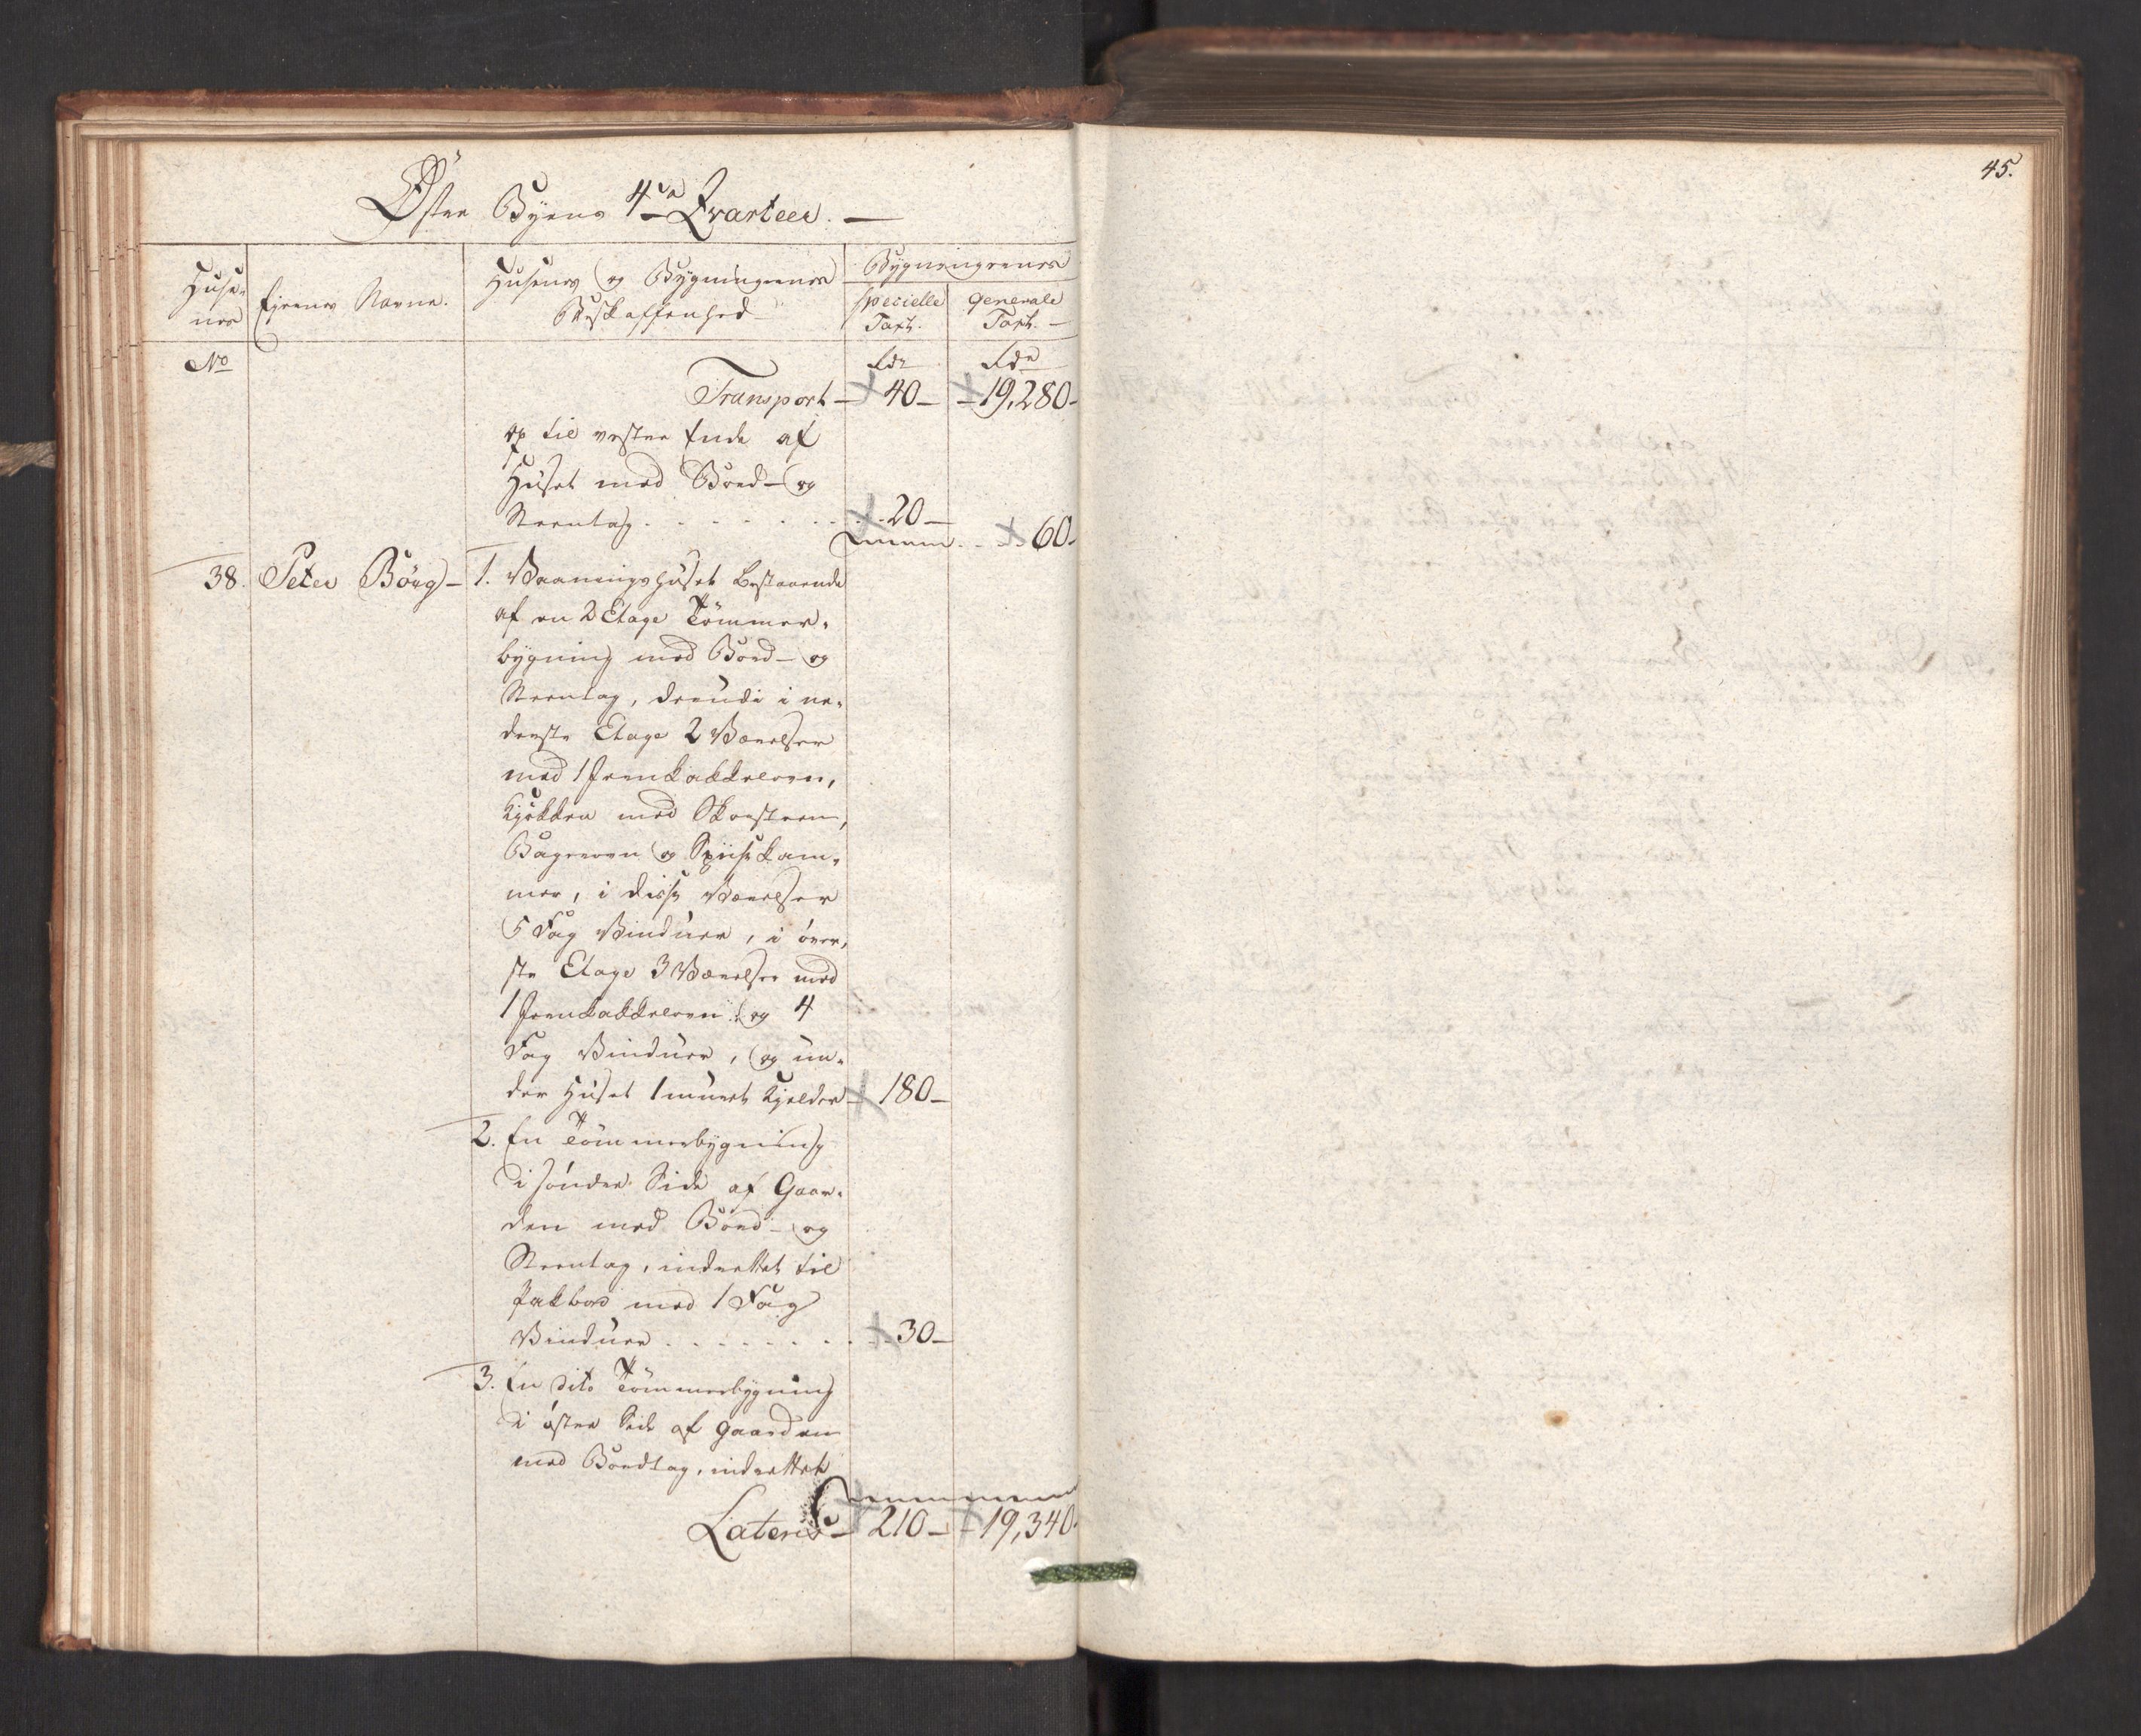 45.
Øster Byens 4de Qvarteer. —
Huse-
nes
Ejernes Navne.
Husenes og Bygningernes
Beskaffenhed
Bygningernes
specielle
Taxt.
generale
Taxt. —
No
Rdr
Rdr
Transport — 40 — — 19,280 -
op til vestre Ende af
Huset med Bord- og
Steentag . . . . . . . . . 20 —
. . . 60 -
38. Peter Börg — 1. Vaaningshuset bestaaende
af en 2 Etage Tömmer-
bygning med Bord- og
Steentag, derudi i ne-
derste Etage 2 Værelser
med 1 Jernkakkelovn,
Kjökken med Skorsteen,
Bagerovn og Spiisekam-
mer, i disse Værelser
5 Fag Vinduer, i över-
ste Etage 3 Værelser med
1 Jernkakkelovn og 4
Fag Vinduer, og un-
der Huset 1 muret Kjelder — 180 —
2. En Tömmerbygning
i sönder Side af Gaar-
den med Bord- og
Steentag, indrettet til
Pakbod med 1 Fag
Vinduer . . . . . . . . 30 —
3. En dito Tömmerbygning
i öster Side af Gaarden
med Bordtag, indrettet
Lateris — 210 — — 19,340 -